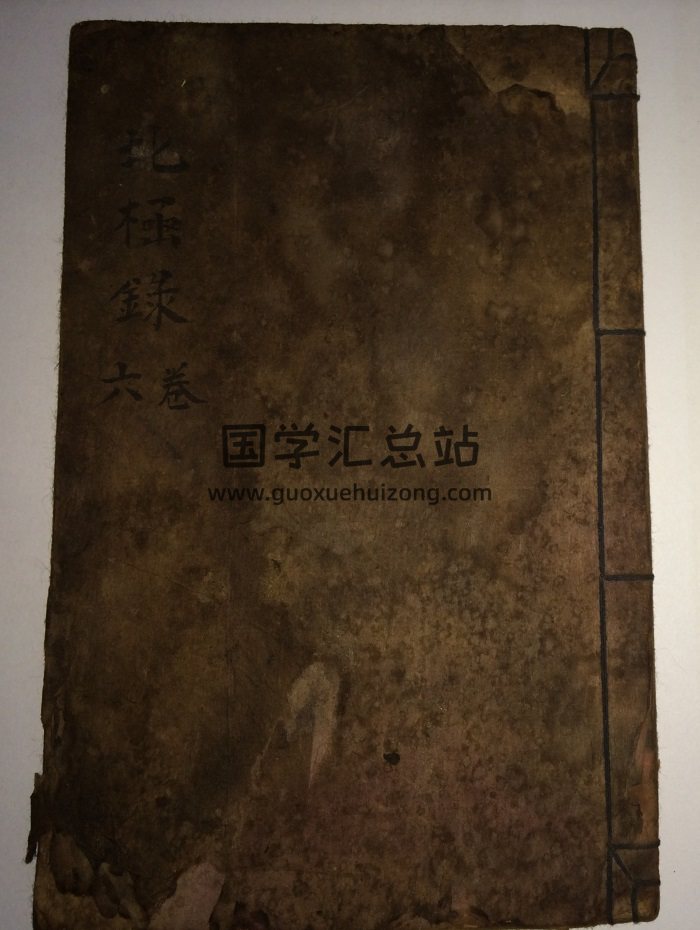 北極錄
六卷
国学汇总站
www.guoxuehuizong.com